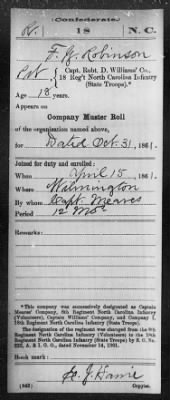 (Confederate.)
R. 18 N.C.
F. J. Robinson
Pvt., Capt. Robt. D. Williams' Co.,
18 Reg't North Carolina Infantry
(State Troops).*
Age 18 years.
Appears on
Company Muster Roll
of the organization named above,
for Dated Oct. 31, 1861.
Joined for duty and enrolled:
When April 15, 1861.
Where Wilmington
By whom Capt. Meares
Period 12 Mos.
Remarks:
*This company was successively designated as Captain
Meares' Company, 8th Regiment North Carolina Infantry
(Volunteers), Captain Williams' Company, and Company I,
18th Regiment North Carolina Infantry (State Troops).
The designation of the regiment was changed from the 8th
Regiment North Carolina Infantry (Volunteers) to the 18th
Regiment North Carolina Infantry (State Troops) by S. O. No.
222, A. & I. G. O., dated November 14, 1861.
Book mark:
(642) Copyist.